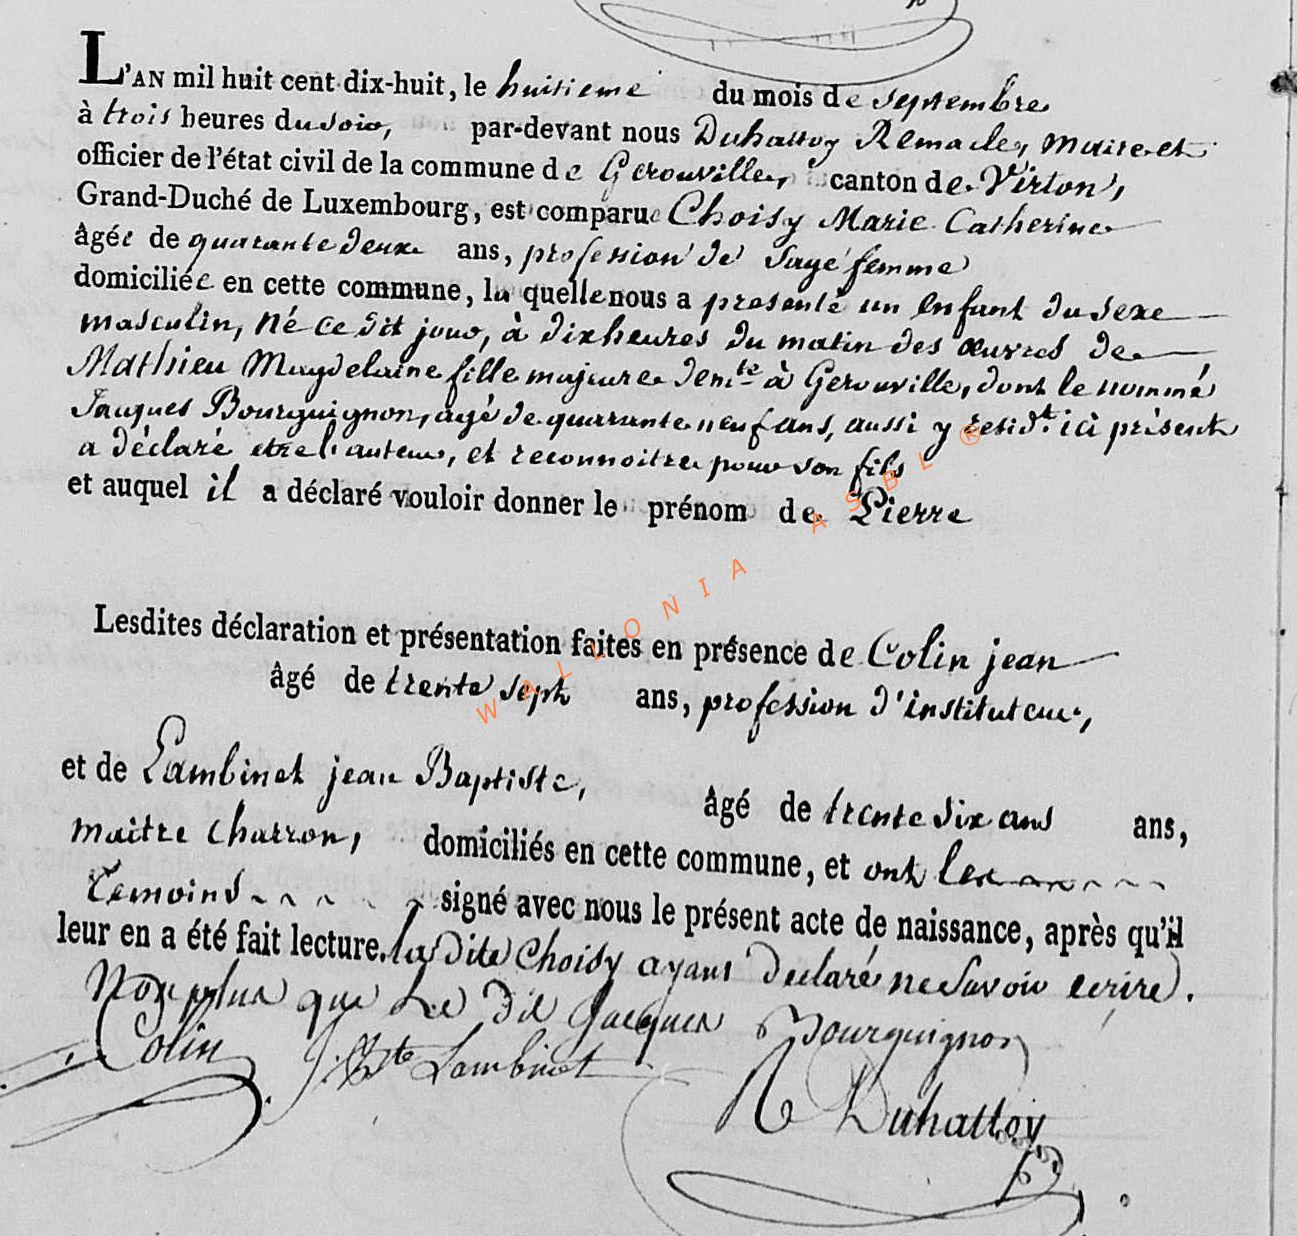 L'AN mil huit cent dix-huit, le huitieme du mois de septembre
à trois heures du soir, par-devant nous Duhattoy Remacle, Maire et
officier de l'état civil de la commune de Gerouville, canton de Virton,
Grand-Duché de Luxembourg, est comparue Choisy Marie Catherine
âgée de quarante deux ans, profession de Sage femme
domiciliée en cette commune, la quelle nous a presenté un enfant du sexe
masculin, né ce dit jour, à dix heures du matin des œuvres de
Mathieu Magdelaine fille majeure demte à Gerouville, dont le nommé
Jacques Bourguignon, agé de quarante neuf ans, aussi y residt ici présent
a déclaré etre l'auteur, et reconnoitre pour son fils
et auquel il a déclaré vouloir donner le prénom de Pierre
Lesdites déclaration et présentation faites en présence de Colin jean
âgé de trente sept ans, profession d'instituteur,
et de Lambinet jean Baptiste, âgé de trente six ans ans,
maitre charron, domiciliés en cette commune, et ont les
temoins signé avec nous le présent acte de naissance, après qu'il
leur en a été fait lecture. la dite Choisy ayant declaré ne Savoir ecrire.
Non plus que Le dit Jacques Bourguignon
Colin J. Bte Lambinet
R Duhattoy
WALLONIA ASBL ®